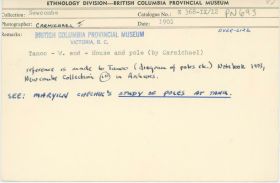 ETHNOLOGY DIVISION—BRITISH COLUMBIA PROVINCIAL MUSEUM
Collection: Newcombe Catalogue No. E 368-IX/12 PN 693
Photographer: CARMICHAEL Date: 1901
Remarks: BRITISH COLUMBIA PROVINCIAL MUSEUM
VICTORIA, B. C.
Tanoo - W. end - House and pole (by Carmichael)
reference is made to Tanoo (diagram of poles etc.) Notebook 1903,
Newcombe Collection in Archives.
SEE: MARILYN CHECHIK'S STUDY OF POLES AT TANU.